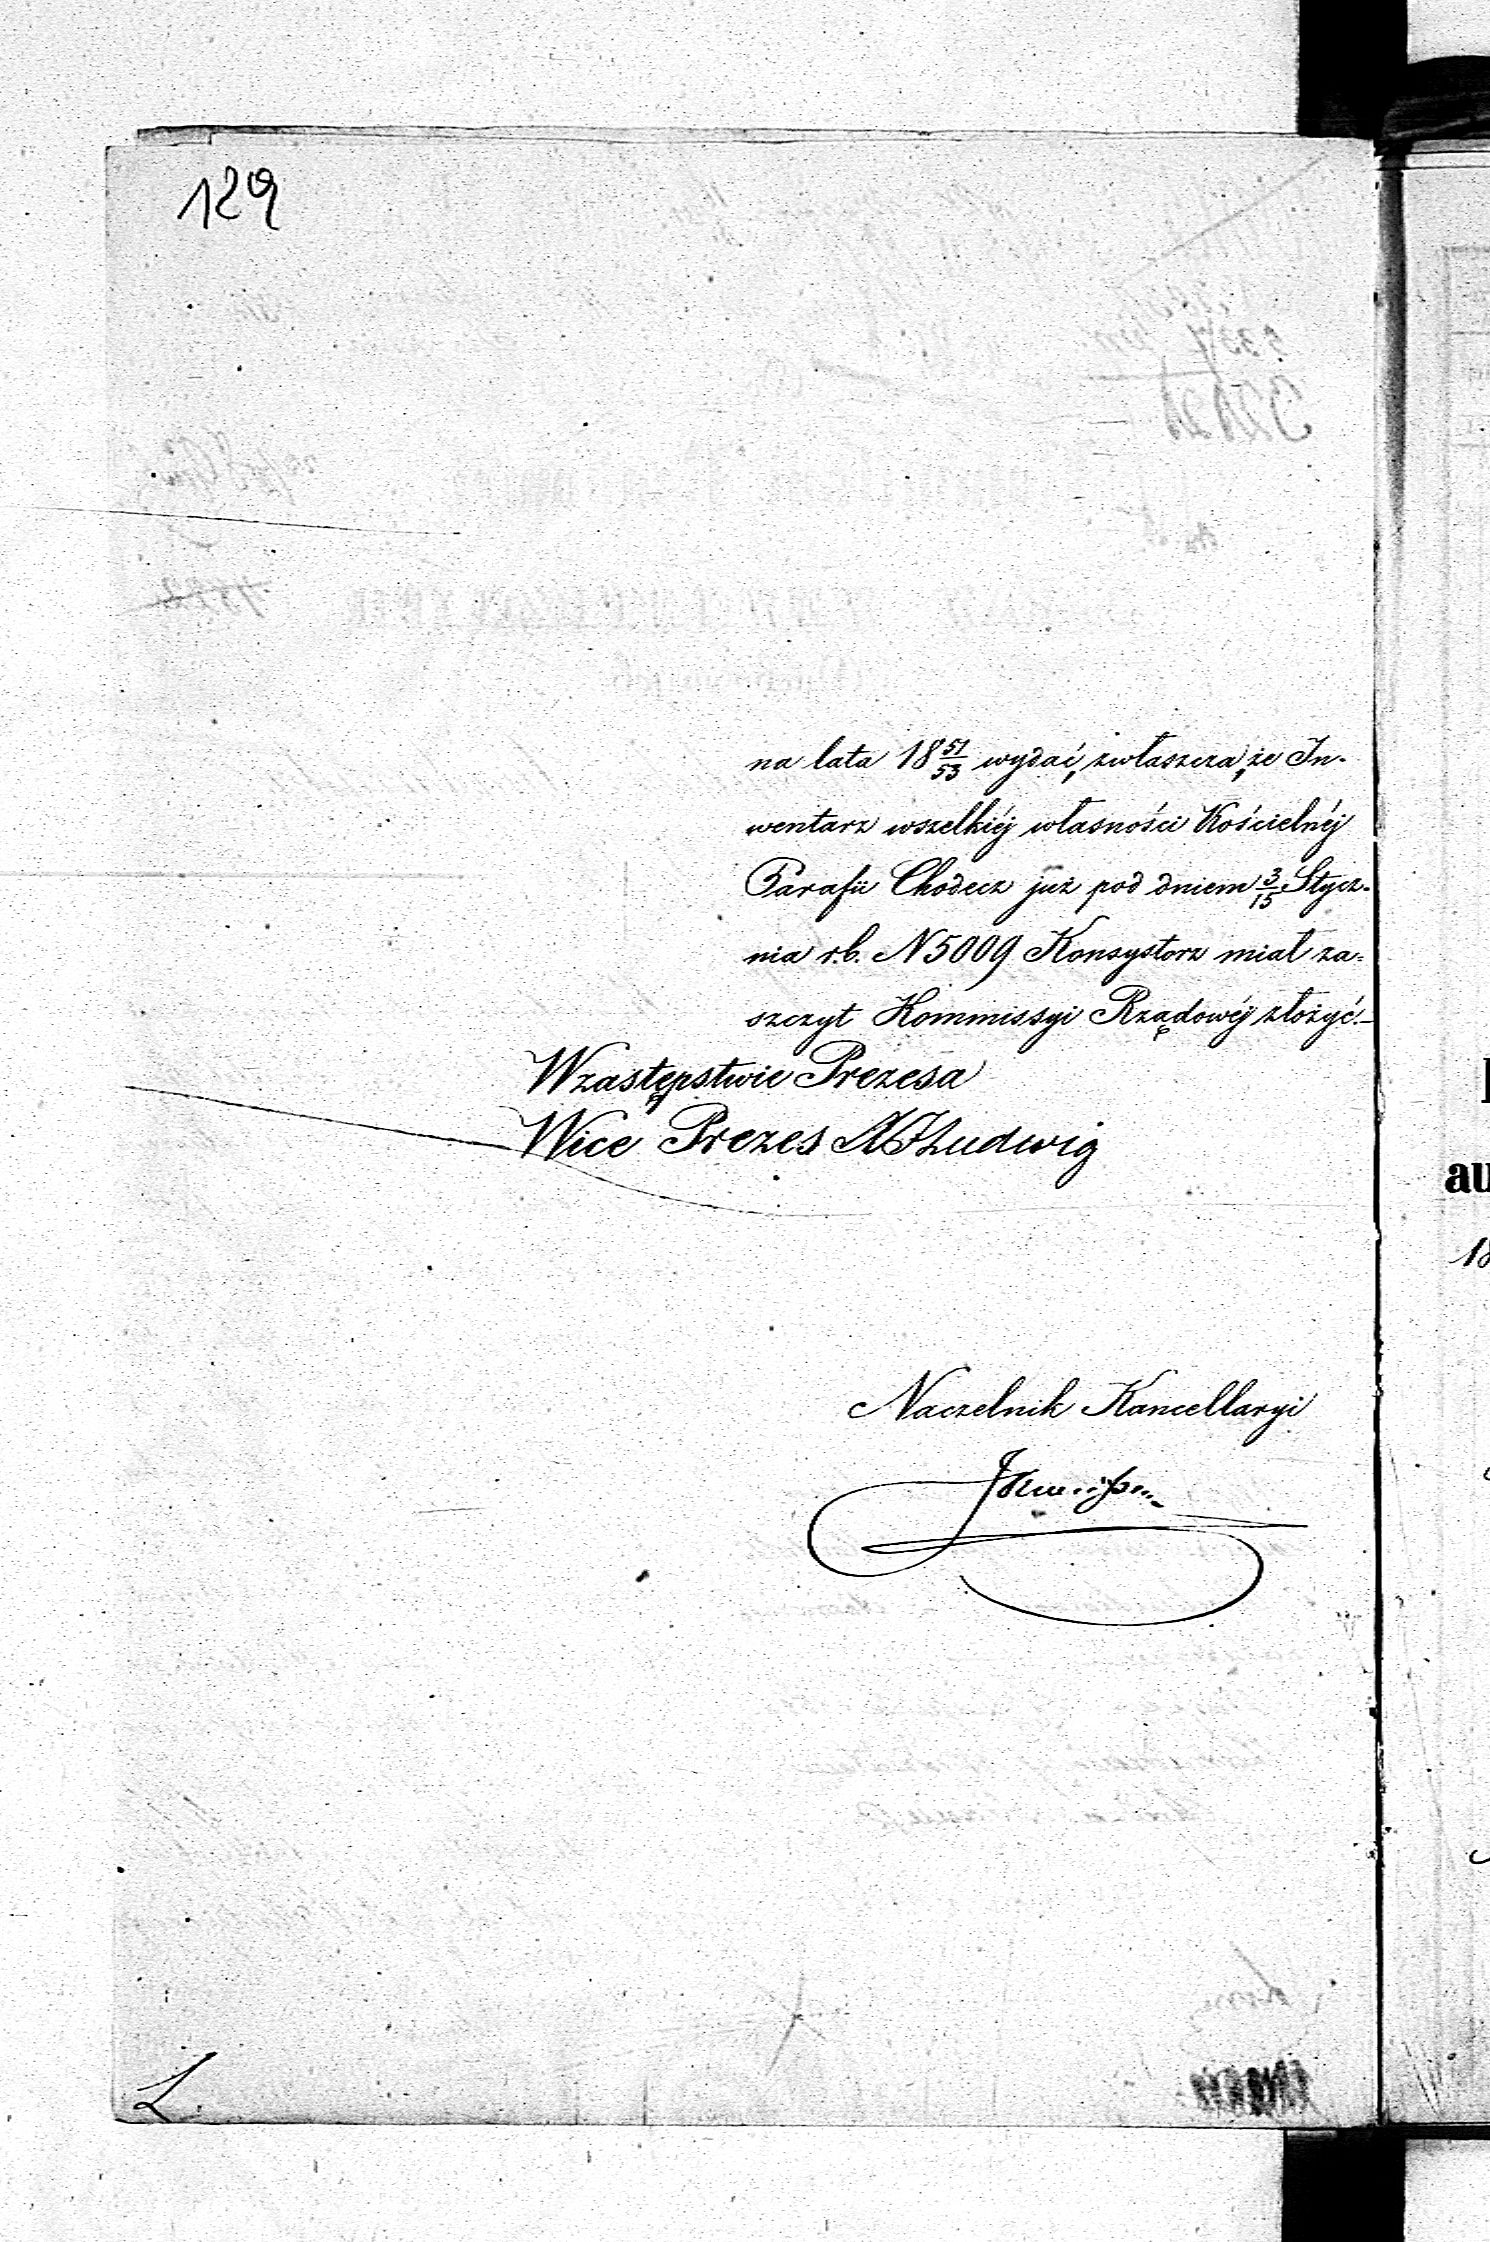 129
na lata 18 51/53 wydać, zwłaszcza, że In-
wentarz wszelkiéj własności Kościelnéj
Parafii Chodecz już pod dniem 3/15 Stycz-
nia r.b. N 5009 Konsystorz miał za-
szczyt Kommissyi Rządowéj złożyć.–
W zastępstwie Prezesa
Wice Prezes Ludwig
Naczelnik Kancellaryi
au
18